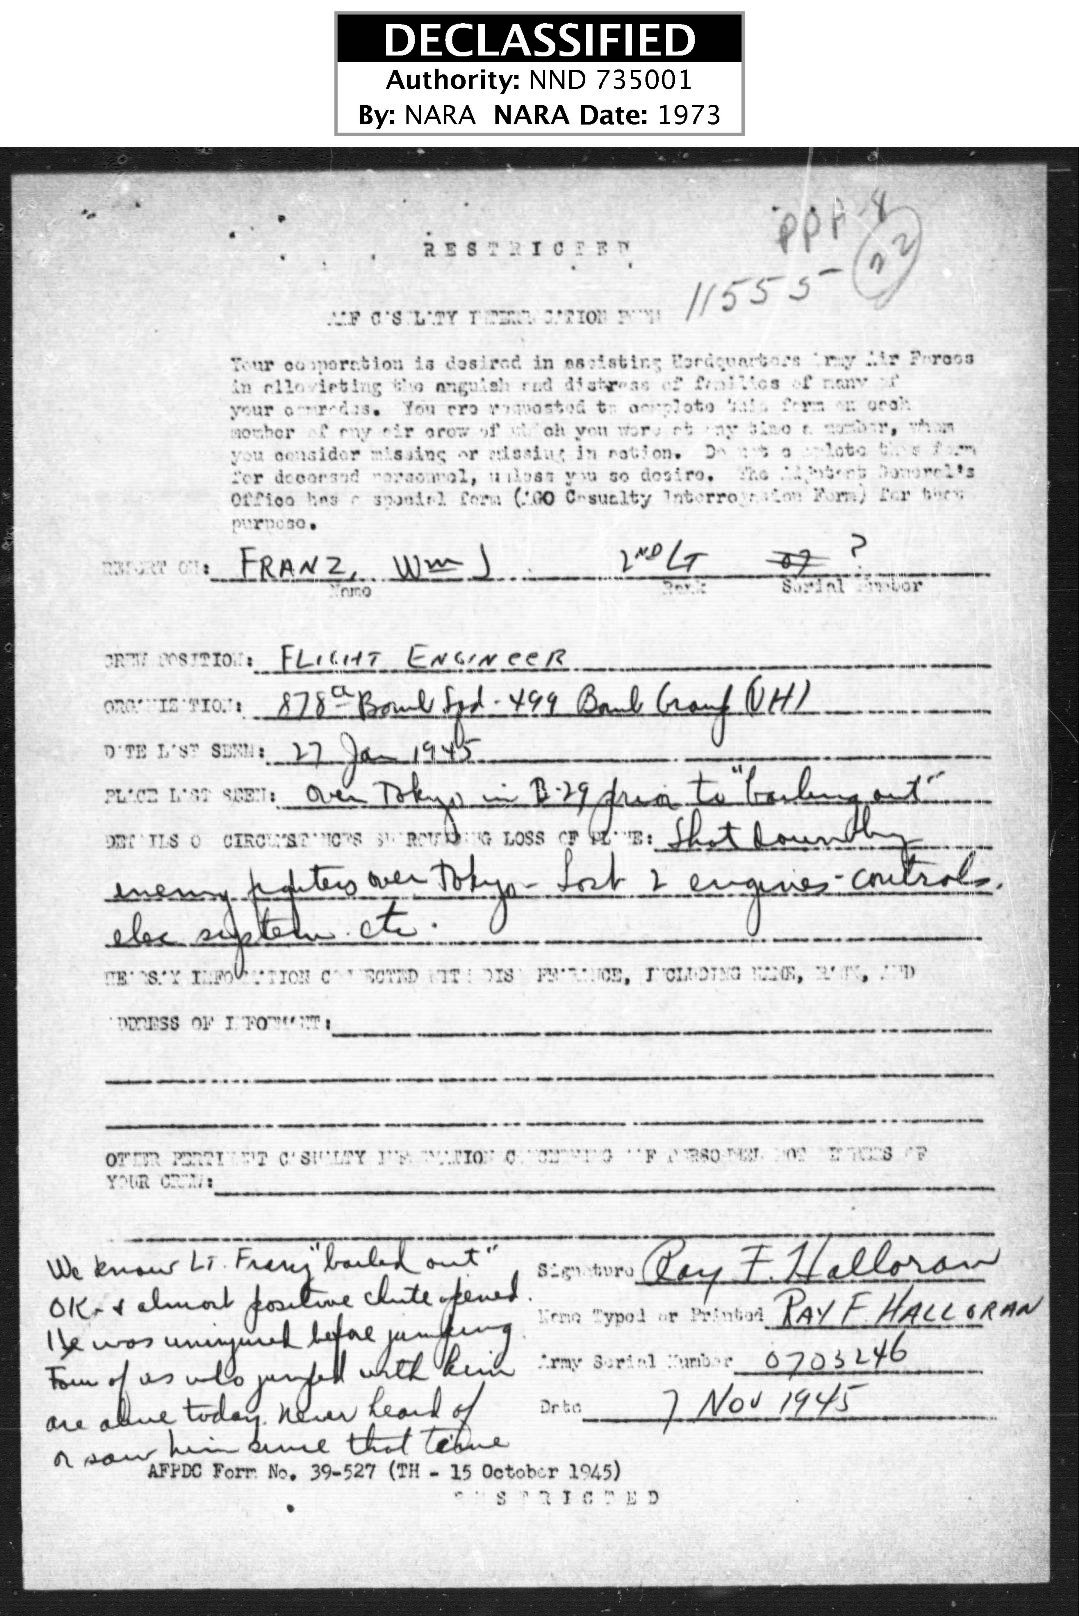 DECLASSIFIED
Authority: NND 735001
By: NARA NARA Date: 1973
PPA-8
22
RESTRICTED
11555-
AAF CASUALTY INTERROGATION FORM
Your cooperation is desired in assisting Headquarters Army Air Forces
in alleviating the anguish and distress of families of many of
your comrades. You are requested to complete this form on each
member of any air crew of which you were at any time a member, whom
you consider missing or missing in action. Do not complete this form
for deceased personnel, unless you so desire. The Adjutant General's
Office has a special form (AGO Casualty Interrogation Form) for that
purpose.
REPORT ON: FRANZ, Wm J 2ND LT 07 ?
Name Rank Serial Number
CREW POSITION: FLIGHT ENGINEER
ORGANIZATION: 878th Bomb Sqd - 499 Bomb Group (VH)
DATE LAST SEEN: 27 Jan 1945
PLACE LAST SEEN: Over Tokyo in B-29 prior to "bailing out"
DETAILS OF CIRCUMSTANCES SURROUNDING LOSS OF PLANE: Shot down by
enemy fighters over Tokyo - Lost 2 engines - controls,
elec system etc.
HEARSAY INFORMATION CONNECTED WITH DISAPPEARANCE, INCLUDING NAME, RANK, AND
ADDRESS OF INFORMANT:
OTHER PERTINENT CASUALTY INFORMATION CONCERNING AAF PERSONNEL NOT MEMBERS OF
YOUR CREW:
We know Lt. Franz "bailed out"
OK - & almost positive chute opened.
He was uninjured before jumping
Four of us who jumped with him
are alive today. Never heard of
or saw him since that time
Signature Ray F. Halloran
Name Typed or Printed RAY F. HALLORAN
Army Serial Number 0703246
Date 7 Nov 1945
AFPDC Form No. 39-527 (TH - 15 October 1945)
RESTRICTED